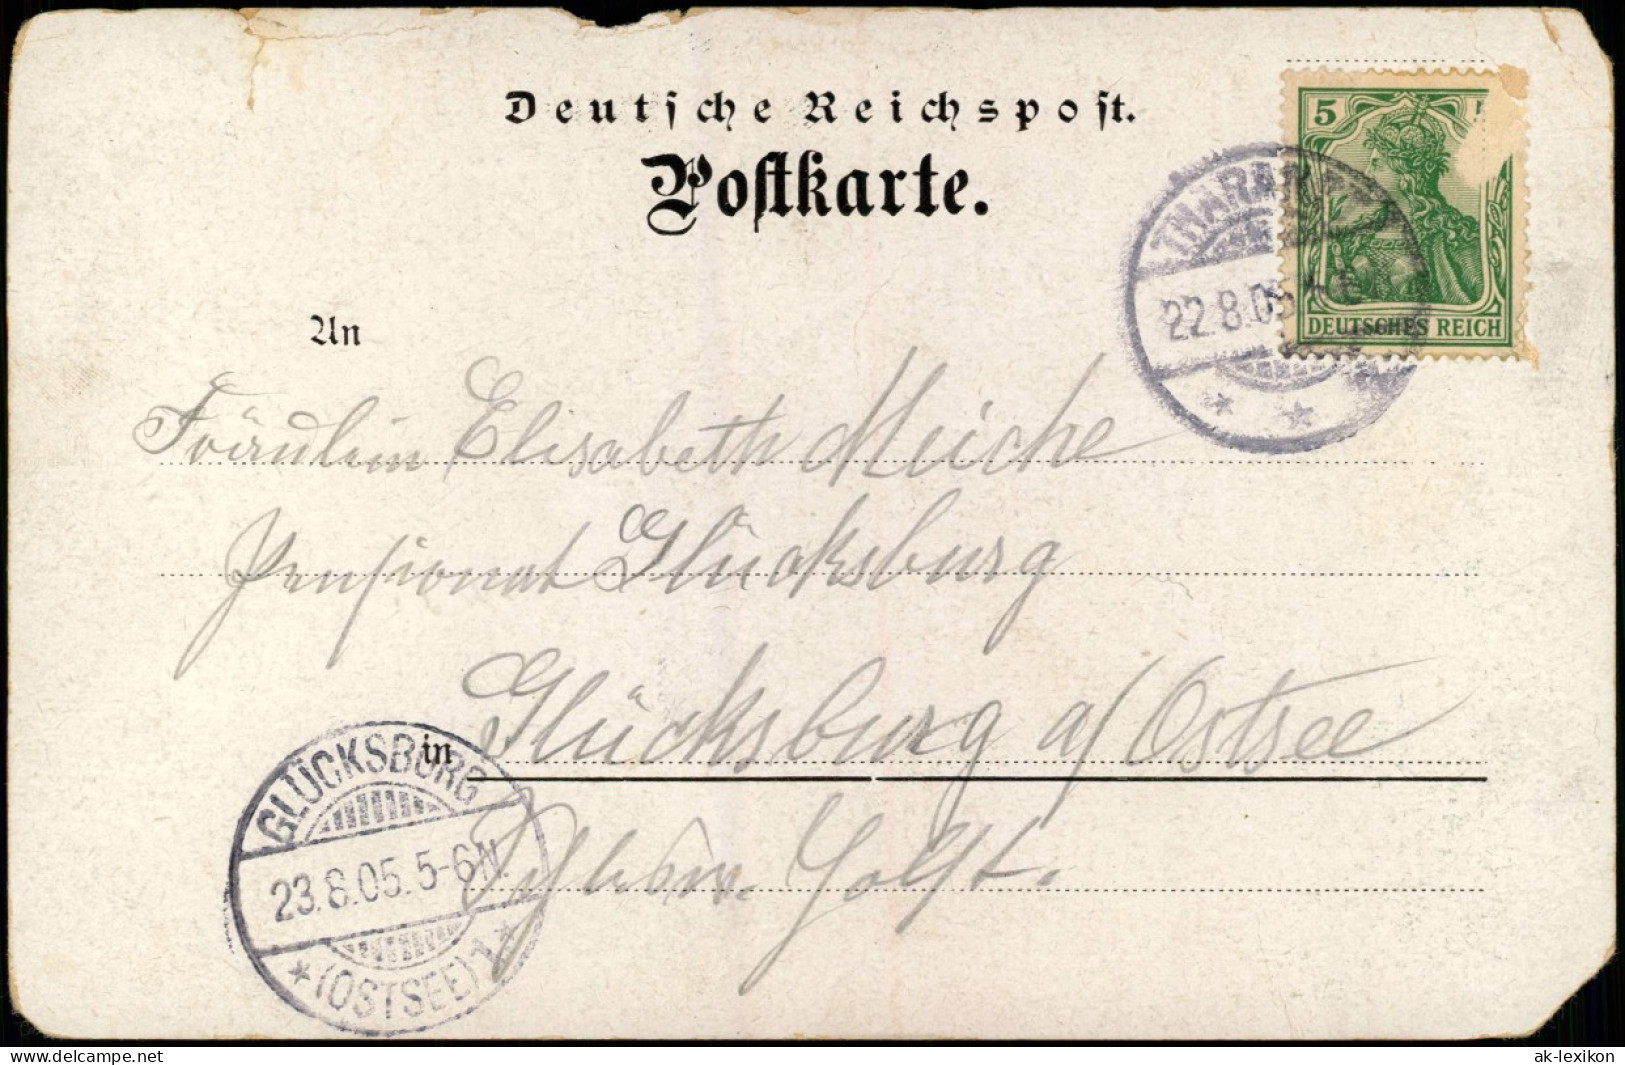 Deutsche Reichspost.
Postkarte.
5
DEUTSCHES REICH
THARANDT
22.8.05.
An
Fräulein Elisabeth Meiche
Pensionat Glücksburg
in Glücksburg a/Ostsee
Schlesw. Holst.
GLÜCKSBURG
23.8.05. 5-6N.
* (OSTSEE) 1 *
www.delcampe.net
ak-lexikon